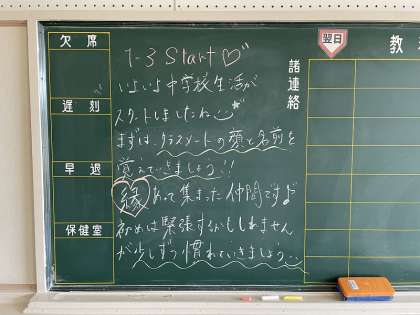 欠席
遅刻
早退
保健室
1-3 Start♡
いよいよ中学校生活が
スタートしましたね
まずは、クラスメートの顔と名前を
覚えていきましょう!!
縁あって集まった仲間です♪
初めは緊張するかもしれません
が少しずつ慣れていきましょう
諸連絡
翌日
教